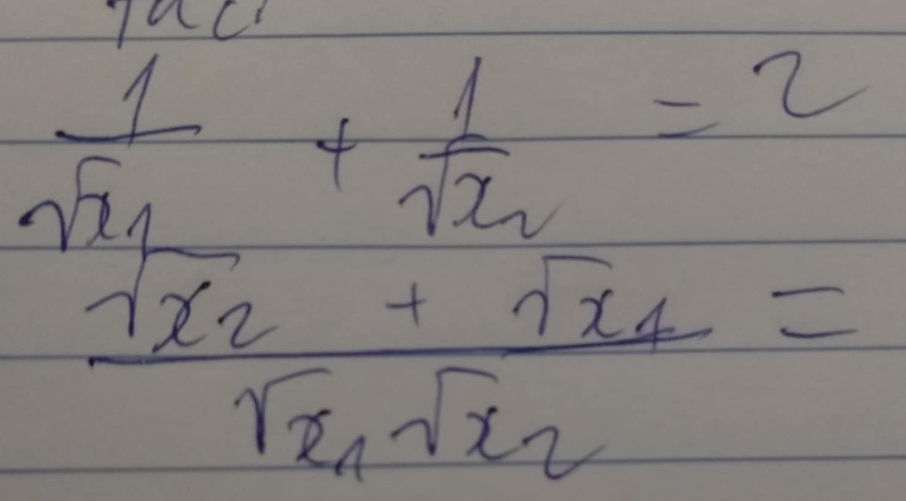 1/√x₁ + 1/√x₂ = 2
(√x₂ + √x₁)/(√x₁√x₂) =